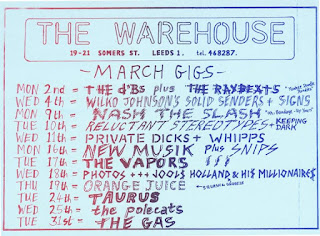 THE WAREHOUSE
19-21 SOMERS ST. LEEDS 1. tel. 468287.
- MARCH GIGS -
MON 2nd = THE d'BS plus THE RAYBEATS
WED 4th = WILKO JOHNSON'S SOLID SENDERS + SIGNS
MON 9th = NASH THE SLASH
TUE 10th = RELUCTANT STEREOTYPES + KEEPING DARK
WED 11th = PRIVATE DICKS + WHIPPS
MON 16th = NEW MUSIK plus SNIPS
TUE 17th = THE VAPORS
WED 18th = PHOTOS +++ JOOLS HOLLAND & HIS MILLIONAIRES
THU 19th = ORANGE JUICE
TUE 24th = TAURUS
WED 25th = the polecats
TUE 31st = THE GAS